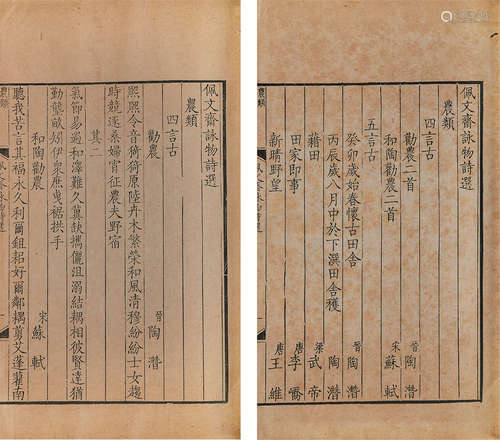 佩文齋詠物詩選
農類
四言古
勸農二首 晉 陶潛
和陶勸農二首 宋 蘇軾
五言古
癸卯歲始春懷古田舍 晉 陶潛
丙辰歲八月中於下潠田舍穫 陶潛
藉田 梁 武帝
田家即事 唐 李
新晴野望 唐 王維
佩文齋詠物詩選
農類
四言古
勸農 晉 陶潛
熙熙令音猗猗原陸卉木繁榮和風清穆紛紛士女趨
時競逐桑婦宵征農夫野宿
其二
氣節易過和澤難久冀缺攜儷沮溺結耦相彼賢達猶
勤壟畝矧伊衆庶曳裾拱手
和陶勸農 宋 蘇軾
聽我苦言其福永久利爾鉏耜好爾鄰耦剪艾蓬藋南